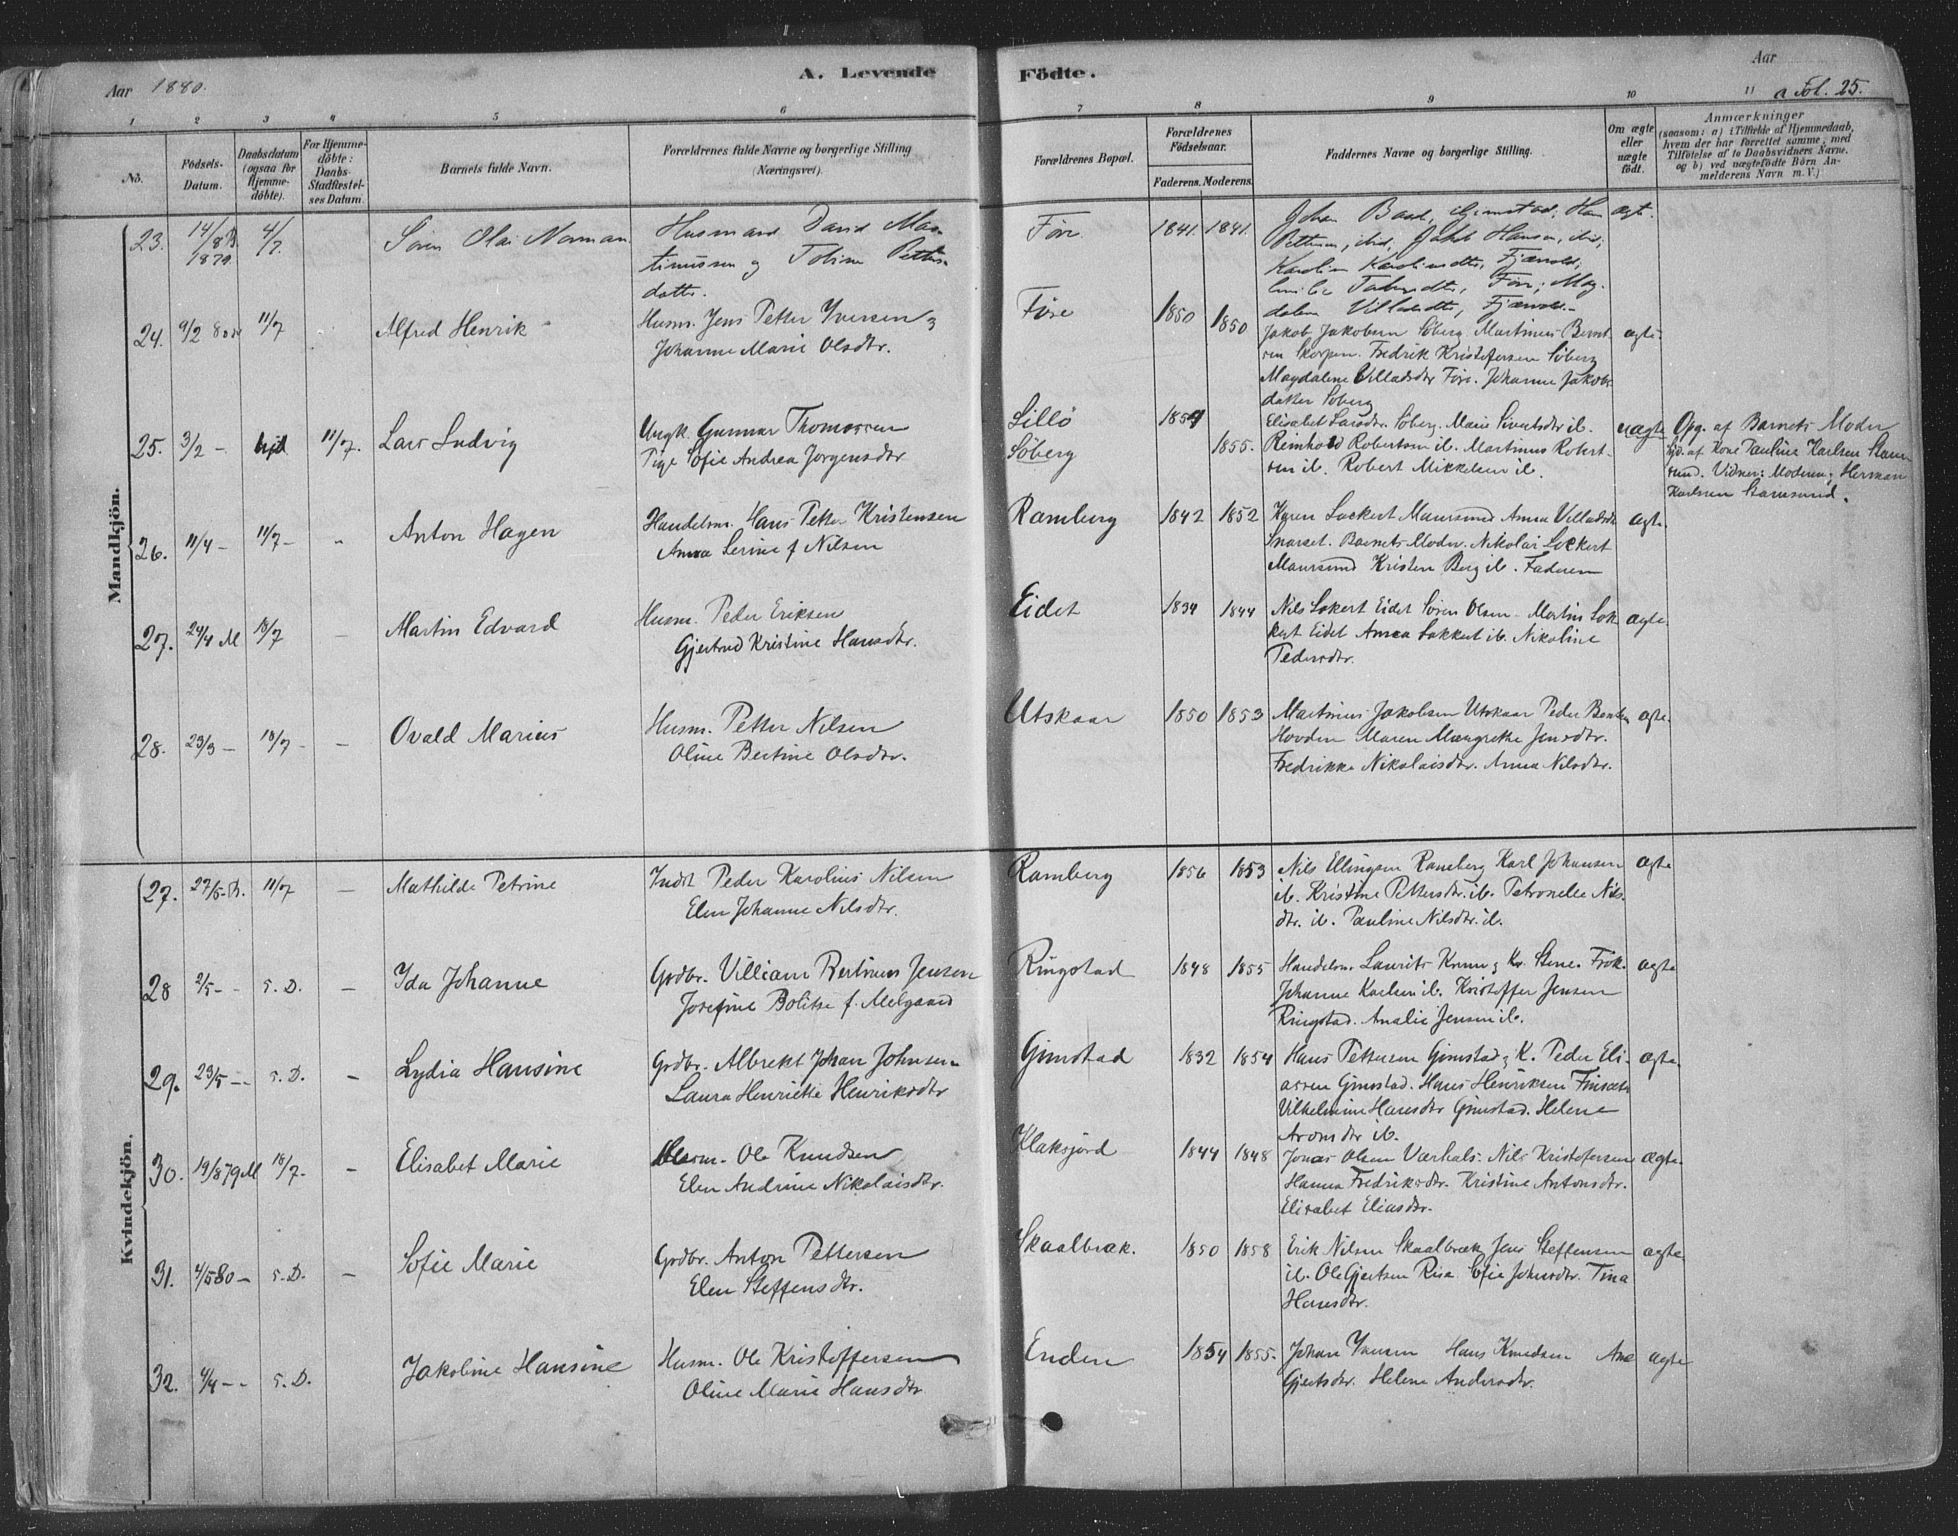 Aar 1880.
A. Levende
Födte.
Aar
a Fol. 25.
1 2 3 4 5 6 7 8 9 10 11
No.
Födsels-Datum.
Daabsdatum (ogsaa for Hjemmedöbte).
For Hjemmedöbte: Daabs-Stadfæstelses Datum.
Barnets fulde Navn.
Forældrenes fulde Navne og borgerlige Stilling (Næringsvei).
Forældrenes Bopæl.
Forældrenes Födselsaar.
Faderens. Moderens.
Faddernes Navne og borgerlige Stilling.
Om ægte eller uægte födt.
Anmærkninger
(saasom: a) i Tilfælde af Hjemmedaab, hvem der har forrettet samme, med Tilföielse af to Daabsvidners Navne, og b) ved uægtefödte Börn Anmelderens Navn m. V.)
Mandkjön.
23. 14/8 B 1879 4/7. Sören Olai Norman Husmand David Mar- Före 1841. 1841. Johan Baad, Gimstad; Hans ægte.
timussen og Tobine Petters- Pettersen, ibid, Jakob Hansen, ibid;
datter. Karoline Karolinesdtr, Fjærvold;
Før; Mag-
dalena Villadsdtr, Fjærvold.
24. 9/2 80 11/7 Alfred Henrik Husm. Jens Petter Iversen og Före 1850 1850 Jakob Jakobsen Söberg Martinus Bernt- ægte.
Johanne Marie Olsdtr. sen Skorpen. Fredrik Kristofersen Söberg
Magdalene Villadsdtr Före. Johanne Jakobs-
datter Söberg
25. 3/2 - hjd 11/7. Lars Ludvig Ungk. Gunnar Thomassen Lillö 1854 Elisabet Larsdtr Söberg. Marie Sivertsdtr ib. uægte Opg. af Barnets Moder
Pige Sofie Andrea Jörgensdtr Söberg 1855. Reinhold Robertsen ib. Martinus Robert- hjd. af Kone Pauline Karlsen Stam-
sen ib. Robert Mikkelsen ib. sund. Vidner: Moderen, Herman
Karlsen Stamsund.
26. 11/4 - 11/7 - " Anton Hagen Handelsm. Hans Petter Kristensen Ramberg 1842 1852 Karen Lockert Maursund Anna Villadsdtr ægte
Anna Serine f Nilsen Snarset. Barnets Moder. Nikolai Lockert
Maursund Kristen Berg ib. Faderen
27. 24/4 M 18/7 - Martin Edvard Husm. Peder Eriksen Eidet 1834 1844 Nils Lokert Eidet Sören Olsen Martin Lok- ægte.
Gjertrud Kristine Hansdtr. kert Eidet Anna Lokkert ib. Nikoline
Pedersdtr.
28. 23/3 - 18/7 - - Ovald Marius Husm. Petter Nilsen Utskaar 1850 1853 Martinus Jakobsen Utskaar Peder Bentsen ægte.
Oline Bertine Olsdtr. Hovden Maren Margrethe Jensdtr.
Fredrikke Nikolaisdtr. Anna Nilsdtr.
Kvindekjön.
27. 27/5 B. 11/7 - Mathilde Petrine Indst Peder Karolius Nilsen Ramberg 1856 1853 Nils Ellingsen Ramberg Karl Johansen ægte
Elen Johanne Nilsdtr. ib. Kristine Pettersdtr. ib. Petronelle Nils-
dtr. ib. Pauline Nilsdtr. ib.
28 2/5 - - s. D. - Ida Johanne Grdbr. Villiam Bertinus Jensen Ringstad 1848 1855 Handelsm. Laurits Krum og K. Stene. Frök. ægte
Josefine Bolitse f. Melgaard Johanne Karlsen ib. Kristoffer Jensen
Ringstad. Amalie Jensen ib.
29. 23/5 - - s. D. - Lydia Hansine Grdbr. Albrekt Johan Johnsen Gimstad 1832 1854 Hans Pettersen Gimstad og K. Peder Eli- ægte.
Laura Henriette Henriksdtr assen Gimstad. Hans Henriksen Finsæt
Vilhelmine Hansdtr Gimstad. Helene
Aronsdtr ib.
30. 19/8 79 M 18/7. - Elisabet Marie Husm. Ole Knudsen Klaksjord 1844 1848 Jonas Olsen Værhals. Nils Kristofersen ægte.
Elen Andrine Nikolaisdtr. Hanna Fredriksdtr. Kristine Antonsdtr.
Elisabet Eliasdtr.
31. 4/5 80 - s. D. - Sofie Marie Grdbr. Anton Pettersen Skaalbræk. 1850 1858 Erik Nilsen Skaalbræk Jens Steffensen ægte
Elen Steffensdtr. ib. Ole Gjertsen Risa Sofie Johnsdtr. Tina
Hansdtr.
32. 4/4 - - s. D. Jakoline Hansine Husm. Ole Kristoffersen Enden 1854 1855. Johan Hans Knudsen Ane ægte
Oline Marie Hansdtr. Gjertsdtr. Helene Andersdtr.